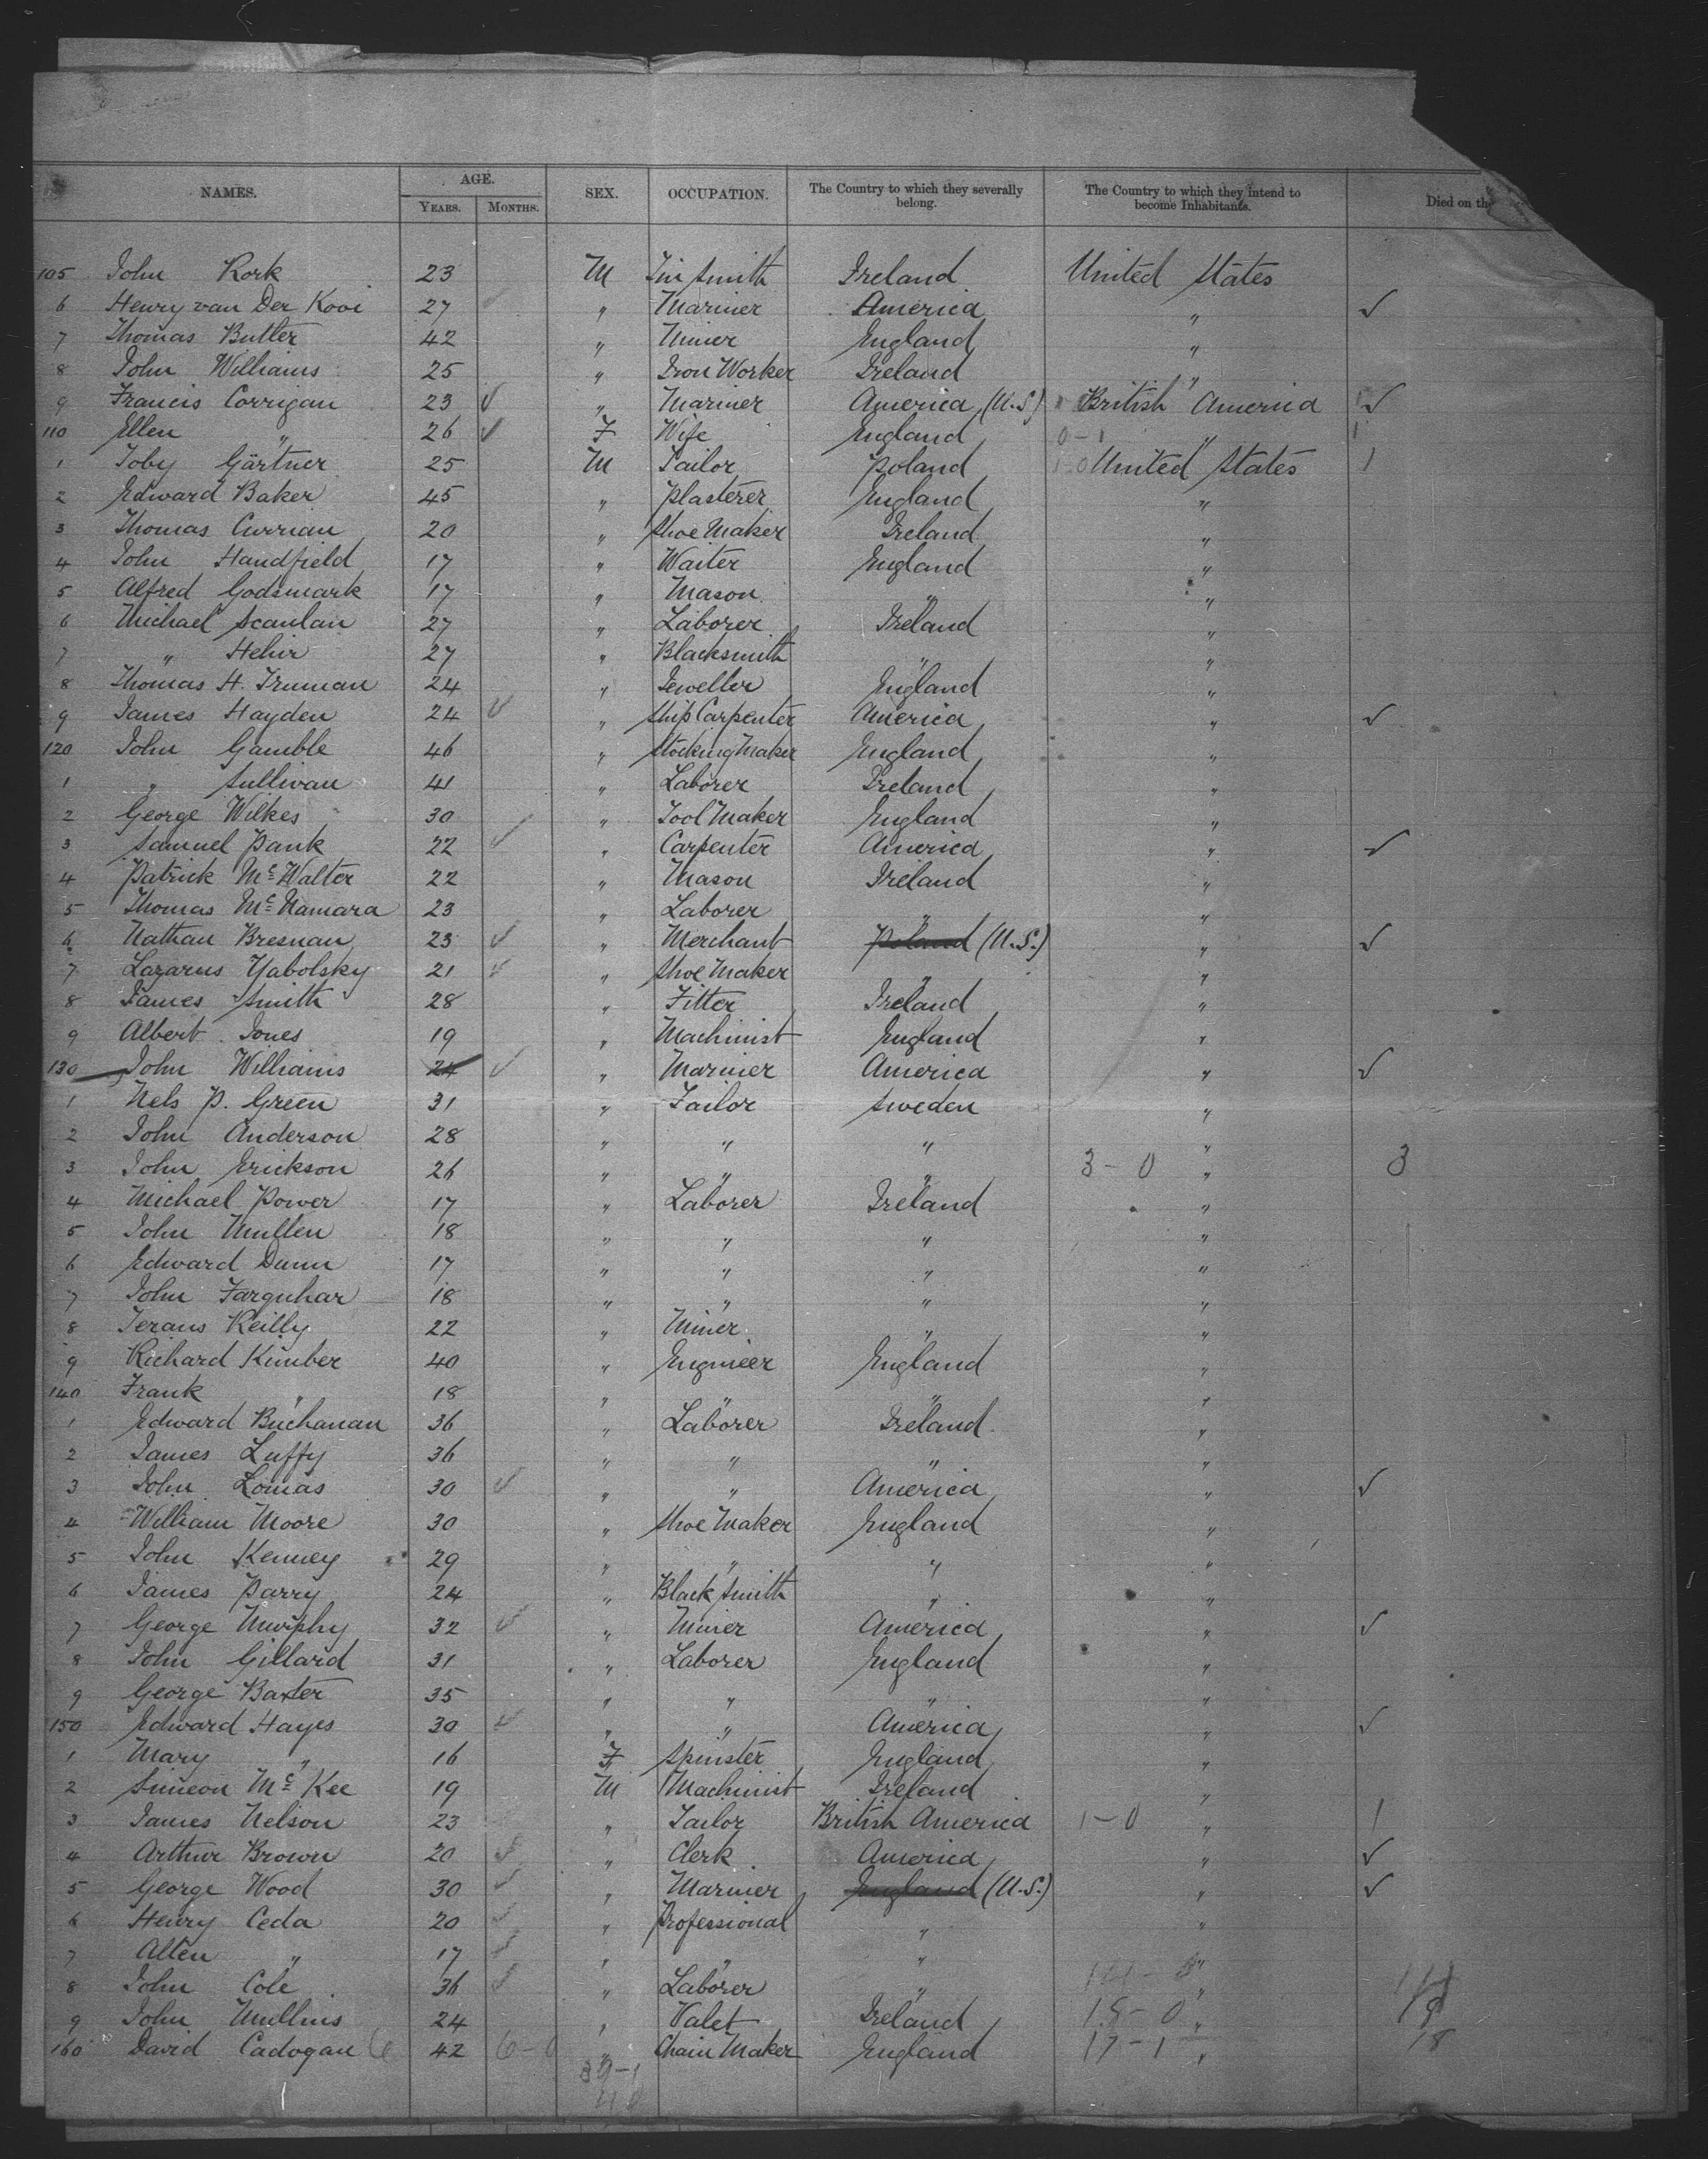 NAMES. AGE. YEARS. MONTHS. SEX. OCCUPATION. The Country to which they severally belong. The Country to which they intend to become Inhabitants. Died on the
105 John Kork 23 M Tin Smith Ireland United States
6 Henry van Der Kooi 27 " Mariner America " ✓
7 Thomas Butler 42 " Miner England "
8 John Williams 25 " Iron Worker Ireland "
9 Francis Corrigan 23 ✓ " Mariner America (U.S.) British America ✓
110 Ellen " 26 ✓ F Wife England 0-1 " 1
1 Toby Gärtner 25 M Tailor Poland 1-0 United States 1
2 Edward Baker 45 " Plasterer England "
3 Thomas Currian 20 " Shoe Maker Ireland "
4 John Handfield 17 " Waiter England "
5 Alfred Godsmark 17 " Mason " "
6 Michael Scanlan 27 " Laborer Ireland "
7 " Hehir 27 " Blacksmith " "
8 Thomas H. Truman 24 " Jeweller England "
9 James Hayden 24 ✓ " Ship Carpenter America " ✓
120 John Gamble 46 " Stocking Maker England "
1 " Sullivan 41 " Laborer Ireland "
2 George Wilkes 30 " Tool Maker England "
3 Samuel Pank 22 ✓ " Carpenter America " ✓
4 Patrick Mc Walter 22 " Mason Ireland "
5 Thomas Mc Namara 23 " Laborer " "
6 Nathan Bresnan 23 ✓ " Merchant Poland (U.S.) " ✓
7 Lazarus Yabolsky 21 ✓ " Shoe Maker " "
8 James Smith 28 " Fitter Ireland "
9 Albert Jones 19 " Machinist England "
130 John Williams 24 ✓ " Mariner America " ✓
1 Nels P. Green 31 " Tailor Sweden "
2 John Anderson 28 " " " "
3 John Erickson 26 " " " 3-0 " 3
4 Michael Power 17 " Laborer Ireland "
5 John Mullen 18 " " " "
6 Edward Dunn 17 " " " "
7 John Farquhar 18 " " " "
8 Terans Keilly 22 " Miner " "
9 Richard Kimber 40 " Engineer England "
140 Frank " 18 " " " "
1 Edward Buchanan 36 " Laborer Ireland "
2 James Luffy 36 " " " "
3 John Lomas 30 ✓ " " America " ✓
4 William Moore 30 " Shoe Maker England "
5 John Kenney 29 " " " "
6 James Parry 24 " Black Smith " "
7 George Murphy 32 ✓ " Miner America " ✓
8 John Gillard 31 " Laborer England "
9 George Baxter 35 " " " "
150 Edward Hayes 30 ✓ " " America " ✓
1 Mary " 16 F Spinster England "
2 Simeon Mc Kee 19 M Machinist Ireland "
3 James Nelson 23 " Tailor British America 1-0 " 1
4 Arthur Brown 20 ✓ " Clerk America " ✓
5 George Wood 30 ✓ " Mariner England (U.S.) " ✓
6 Henry Ceda 20 ✓ " Professional " "
7 Alten " 17 ✓ " " " "
8 John Cole 36 ✓ " Laborer " "
9 John Mullins 24 " Valet Ireland 18-0 "
160 David Cadogan 42 " Chain Maker England 17-1 " 18
39-1